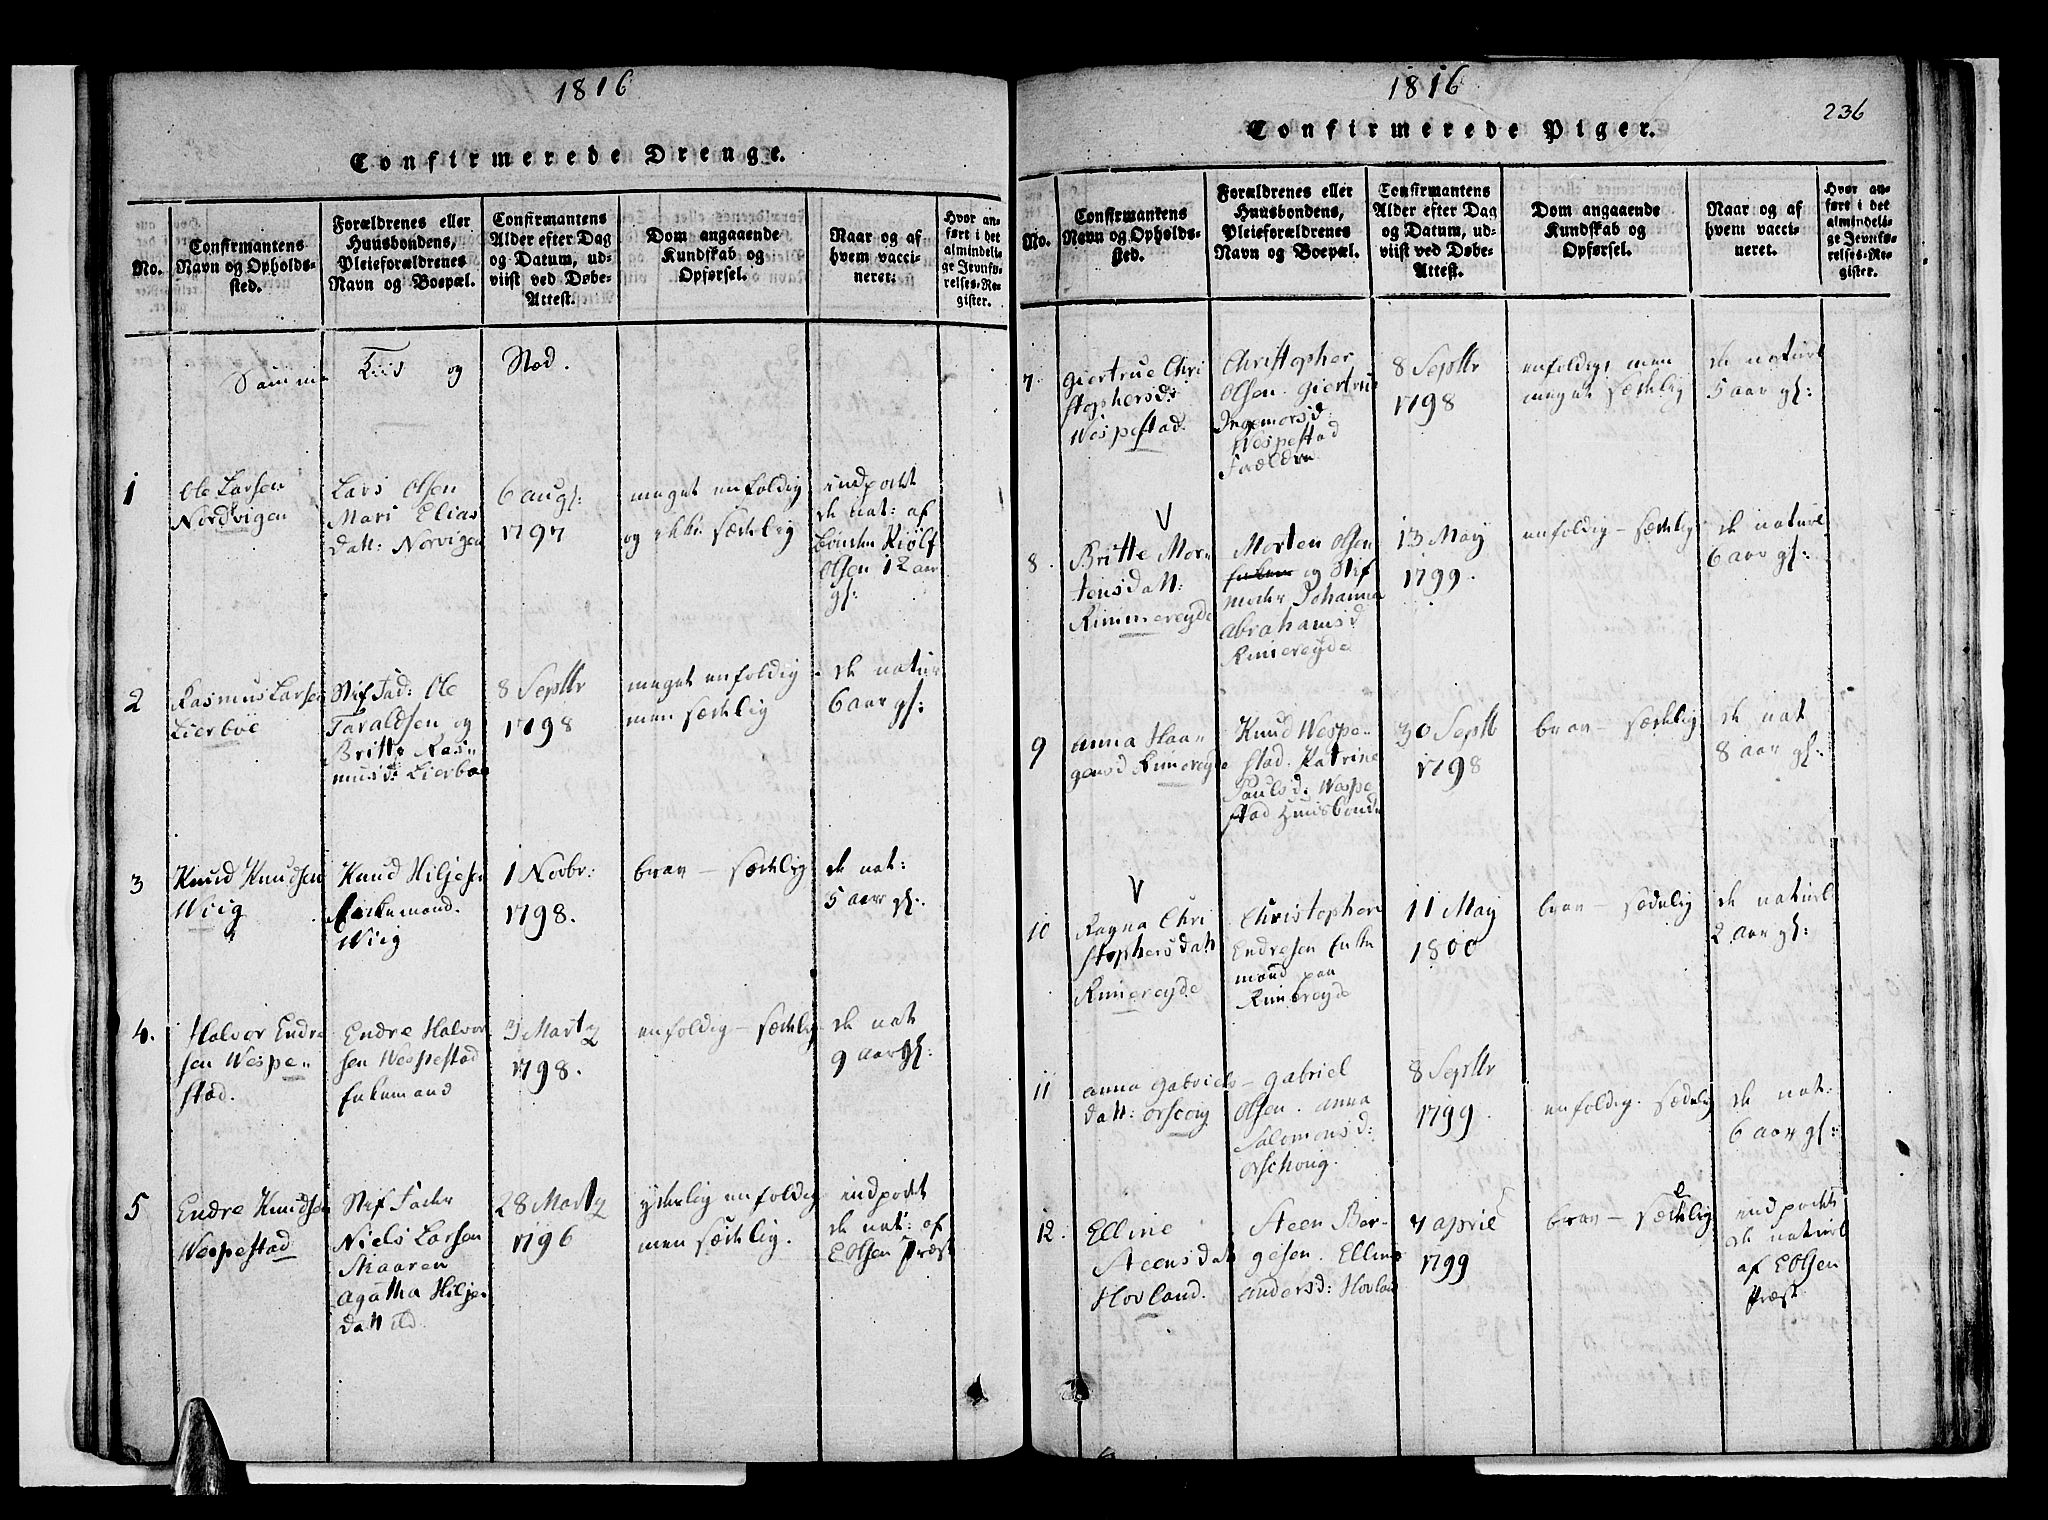 1816
Confirmerede Drenge.
No.
Confirmantens
Navn og Opholds-
sted.
Forældrenes eller
Huusbondens,
Pleieforældrenes
Navn og Boepæl.
Confirmantens
Alder efter Dag
og Datum, ud-
viist ved Døbe-
Attest.
Dom angaaende
Kundskab og
Opførsel.
Naar og af
hvem vacci-
neret.
Hvor an-
ført i det
almindeli-
ge Jevnfø-
relses-Re-
gister.
Samme Tiid og Sted.
1
Ole Larsen
Nordvigen
Lars Olsen
Mari Elias
datt: Norvigen
6 augs:
1797
meget enfoldig
og ikke sædelig
indpodet
de nat: af
Kiølf
Olsen 12 aar
gl:
2
Rasmus Larsen
Lierboe
Stif Fad: Ole
Taraldsen og
Britte Ras-
musd: Lierboe
8 Septbr
1798
meget enfoldig
men sædelig
de natur
6 aar gl:
3
Knud Knudsen
Wiig
Knud Hiljesen
Enkemand.
Wiig
1 Novbr:
1798.
brav - sædelig
de nat:
5 aar gl:
4.
Halvor Endre
sen Wespe-
stad.
Endre Halvor
sen Wespestad
Enkemand
3 Martz
1798.
enfoldig - sædelig
de nat
9 aar gl:
5
Endre Knudsen
Wespestad
Stif Fader
Niels Larsen
Maaren
Agatha Hilje
datt
28 Martz
1796
yderlig enfoldig
men sædelig.
indpodet
de nat: af
E Olsen Præst
1816
236
Confirmerede Piger.
No.
Confirmantens
Navn og Opholds-
sted.
Forældrenes eller
Huusbondens,
Pleieforældrenes
Navn og Boepæl.
Confirmantens
Alder efter Dag
og Datum, ud-
viist ved Døbe-
Attest.
Dom angaaende
Kundskab og
Opførsel.
Naar og af
hvem vacci-
neret.
Hvor an-
ført i det
almindeli-
ge Jevnfø-
relses-Re-
gister.
7
Giertrue Chri
stophersd:
Wespestad.
Christopher
Olsen. Giertrue
Ingemorsd:
Wespestad
Forældre
8 Septbr
1798
enfoldig men
meget sædelig
de naturl
5 aar gl:
V
8.
Britte Mor-
tensdatt:
Rimmereyde
Morten Olsen
og Stif
moder Johanna
Abrahamsd
Rimereyde
13 May
1799.
enfoldig - sædelig
de naturl
6 aar gl:
9
Anna Haa-
gensd Rimereyde
Knud Wespe-
stad. Katrine
Paulsd: Wespe
stad Huusbonde
30 Septb
1798
brav - sædelig
de nat
8 aar gl:
V
10
Ragna Chri
stophersdatt
Rimereyde
Christopher
Endresen Enke
mand paa
Rimereyde
11 May
1800
brav - sædelig
de naturl
2 aar gl:
11
Anna Gabriels-
datt: Orscong
Gabriel
Olsen. Anna
Salomonsd:
Orschong.
8 Septbr
1799.
enfoldig. sædelig
de nat:
6 aar gl:
12.
Elline
Steensdatt
Hovland.
Steen Ber-
gesen. Elline
Andersd: Hovland
7 april
1799
brav - sædelig
indpodet
de naturl
af E Olsen
Præst